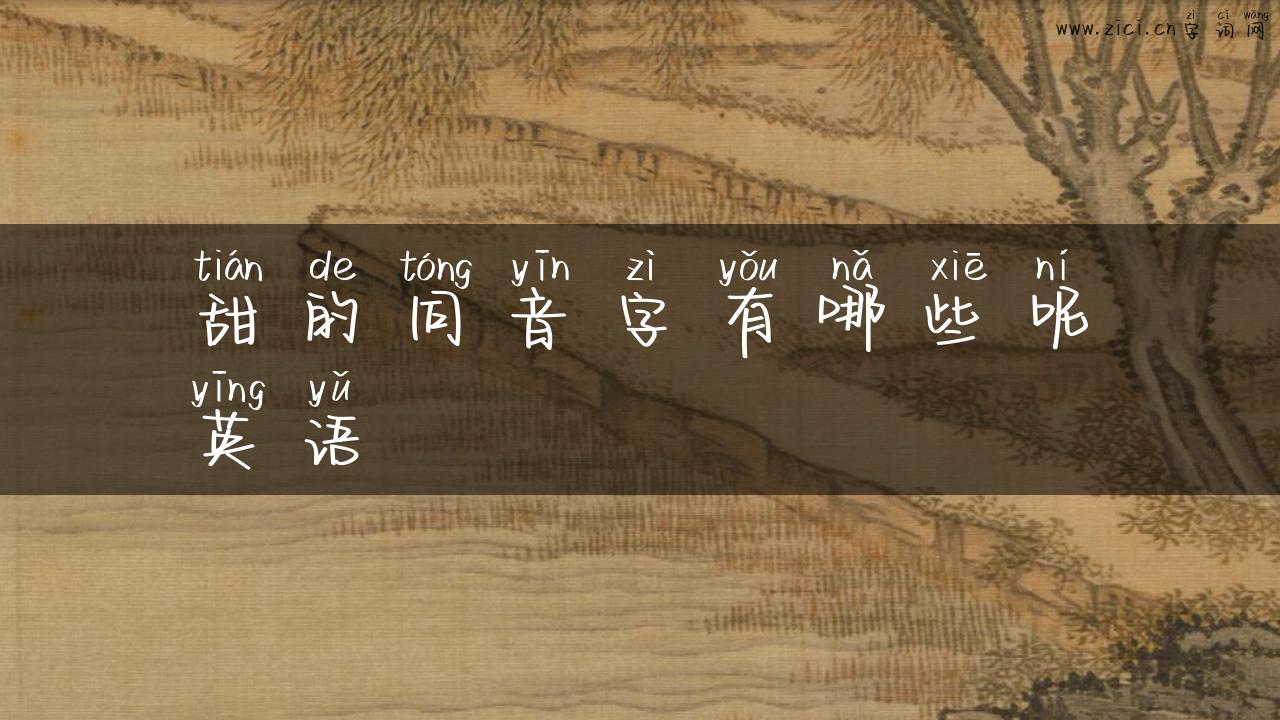 zì cí wǎng
www.zici.cn字词网
tián de tóng yīn zì yǒu nǎ xiē ní
甜的同音字有哪些呢
yīng yǔ
英语